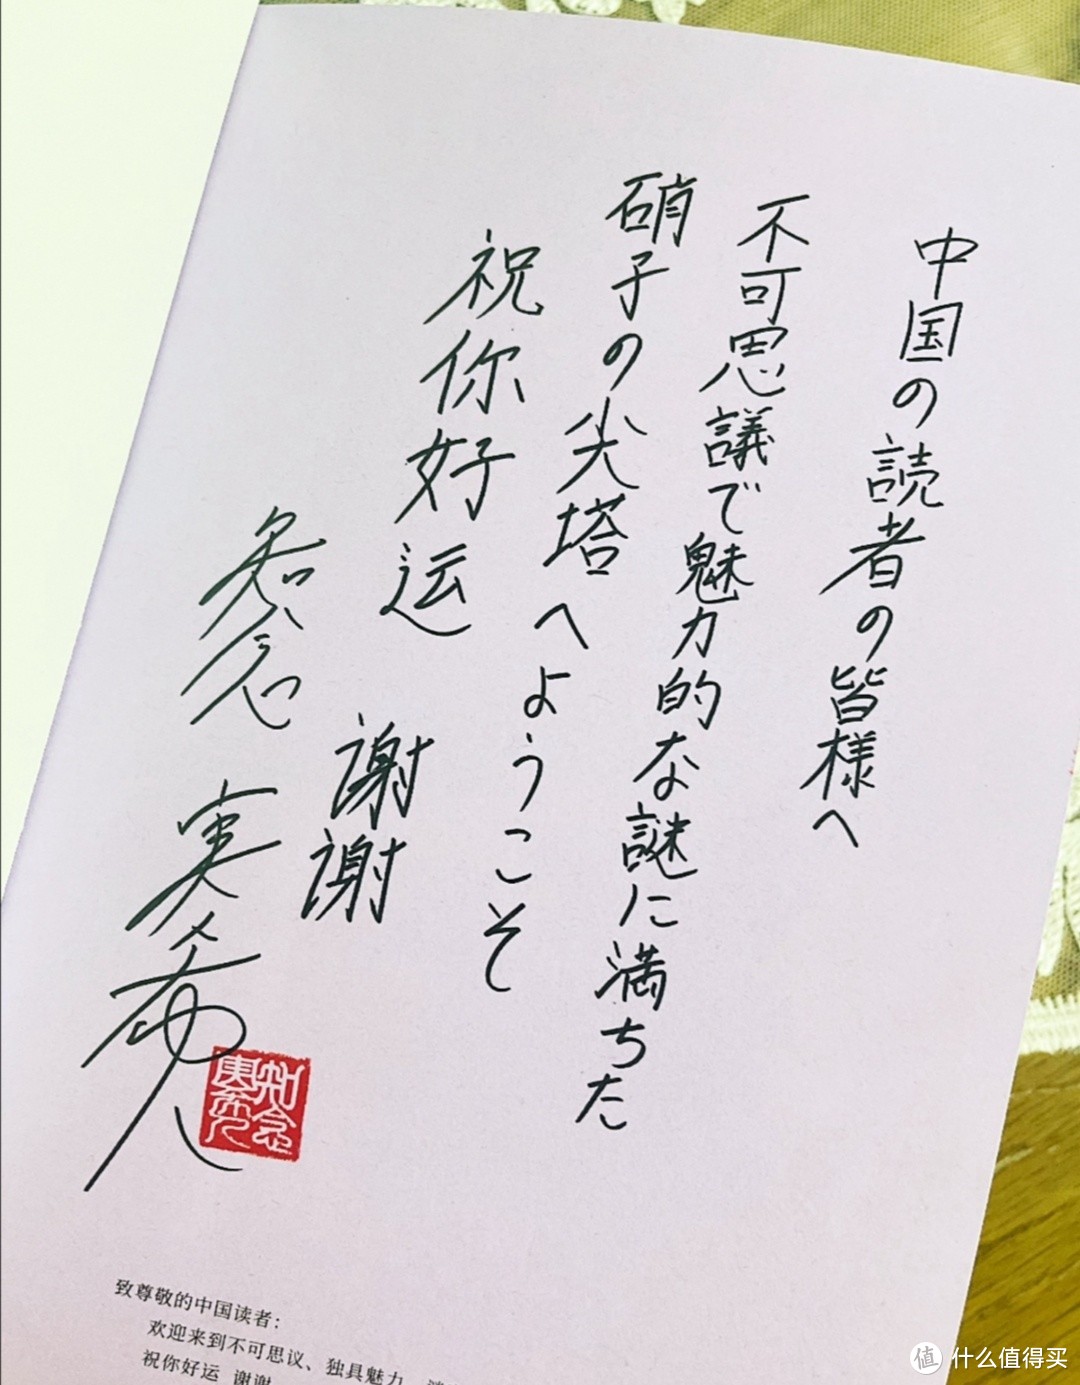 中国の読者の皆様へ
不可思議で魅力的な謎に満ちた
硝子の尖塔へようこそ
祝你好运
谢谢
知念 実希人
知念
実希人
致尊敬的中国读者：
欢迎来到不可思议、独具魅力、
祝你好运 谢谢
值 什么值得买